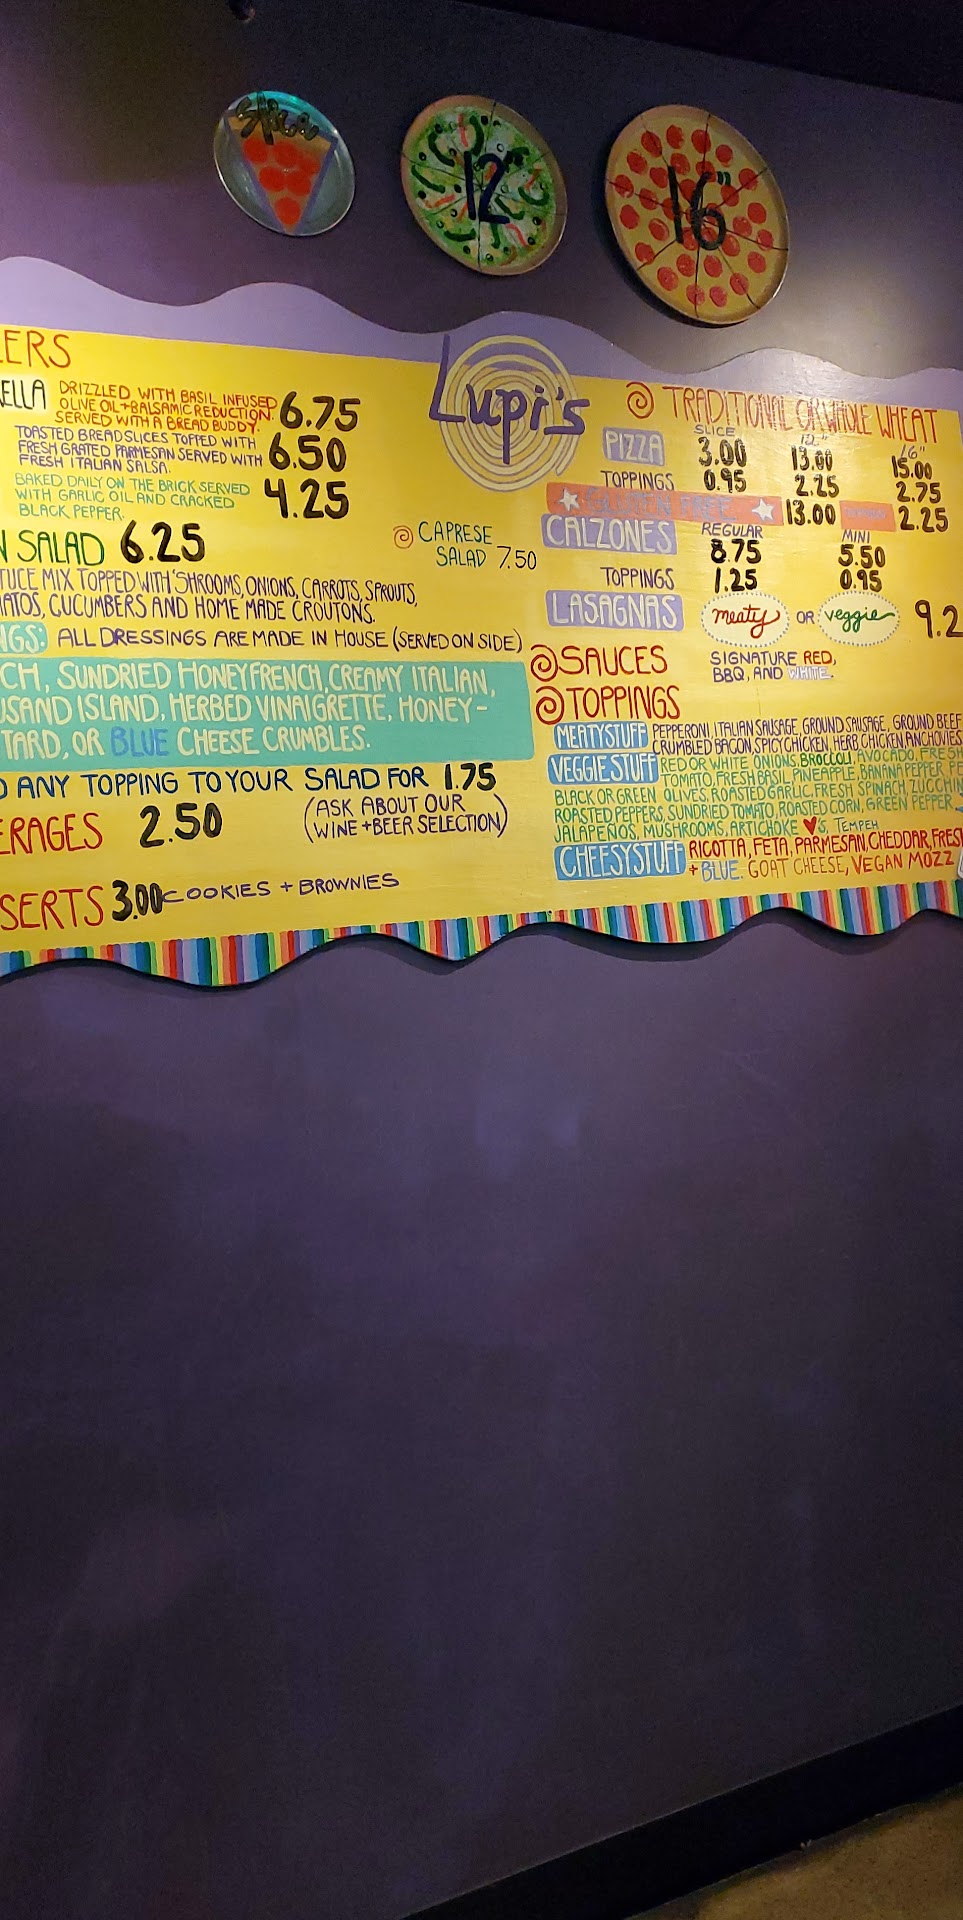 12"
16"
ERS
ELLA DRIZZLED WITH BASIL INFUSED
OLIVE OIL + BALSAMIC REDUCTION.
SERVED WITH A BREAD BUDDY. 6.75
TOASTED BREAD SLICES TOPPED WITH
FRESH GRATED PARMESAN SERVED WITH
FRESH ITALIAN SALSA. 6.50
BAKED DAILY ON THE BRICK SERVED
WITH GARLIC OIL AND CRACKED
BLACK PEPPER. 4.25
N SALAD 6.25
CAPRESE
SALAD 7.50
TUCE MIX TOPPED WITH 'SHROOMS, ONIONS, CARROTS, SPROUTS,
ATOS, CUCUMBERS AND HOME MADE CROUTONS.
NGS: ALL DRESSINGS ARE MADE IN HOUSE (SERVED ON SIDE)
CH, SUNDRIED HONEYFRENCH, CREAMY ITALIAN,
USAND ISLAND, HERBED VINAIGRETTE, HONEY-
TARD, OR BLUE CHEESE CRUMBLES.
D ANY TOPPING TO YOUR SALAD FOR 1.75
ERAGES 2.50
(ASK ABOUT OUR
WINE + BEER SELECTION)
SERTS 3.00 COOKIES + BROWNIES
Lupi's
TRADITIONAL OR WHOLE WHEAT
SLICE 12" 16"
PIZZA 3.00 13.00 15.00
TOPPINGS 0.95 2.25 2.75
GLUTEN FREE 13.00 2.25
REGULAR MINI
CALZONES 8.75 5.50
TOPPINGS 1.25 0.95
LASAGNAS meaty OR veggie 9.2
SAUCES SIGNATURE RED,
BBQ, AND WHITE.
TOPPINGS
MEATYSTUFF PEPPERONI, ITALIAN SAUSAGE, GROUND SAUSAGE, GROUND BEEF
CRUMBLED BACON, SPICY CHICKEN, HERB CHICKEN, ANCHOVIES
VEGGIESTUFF RED OR WHITE ONIONS, BROCCOLI, AVOCADO, FRESH
TOMATO, FRESH BASIL, PINEAPPLE, BANANA PEPPER, PE
BLACK OR GREEN OLIVES, ROASTED GARLIC, FRESH SPINACH, ZUCCHIN
ROASTED PEPPERS, SUNDRIED TOMATO, ROASTED CORN, GREEN PEPPER,
JALAPEÑOS, MUSHROOMS, ARTICHOKE ♥'S, TEMPEH
CHEESYSTUFF RICOTTA, FETA, PARMESAN, CHEDDAR, FRESH
+ BLUE. GOAT CHEESE, VEGAN MOZZ